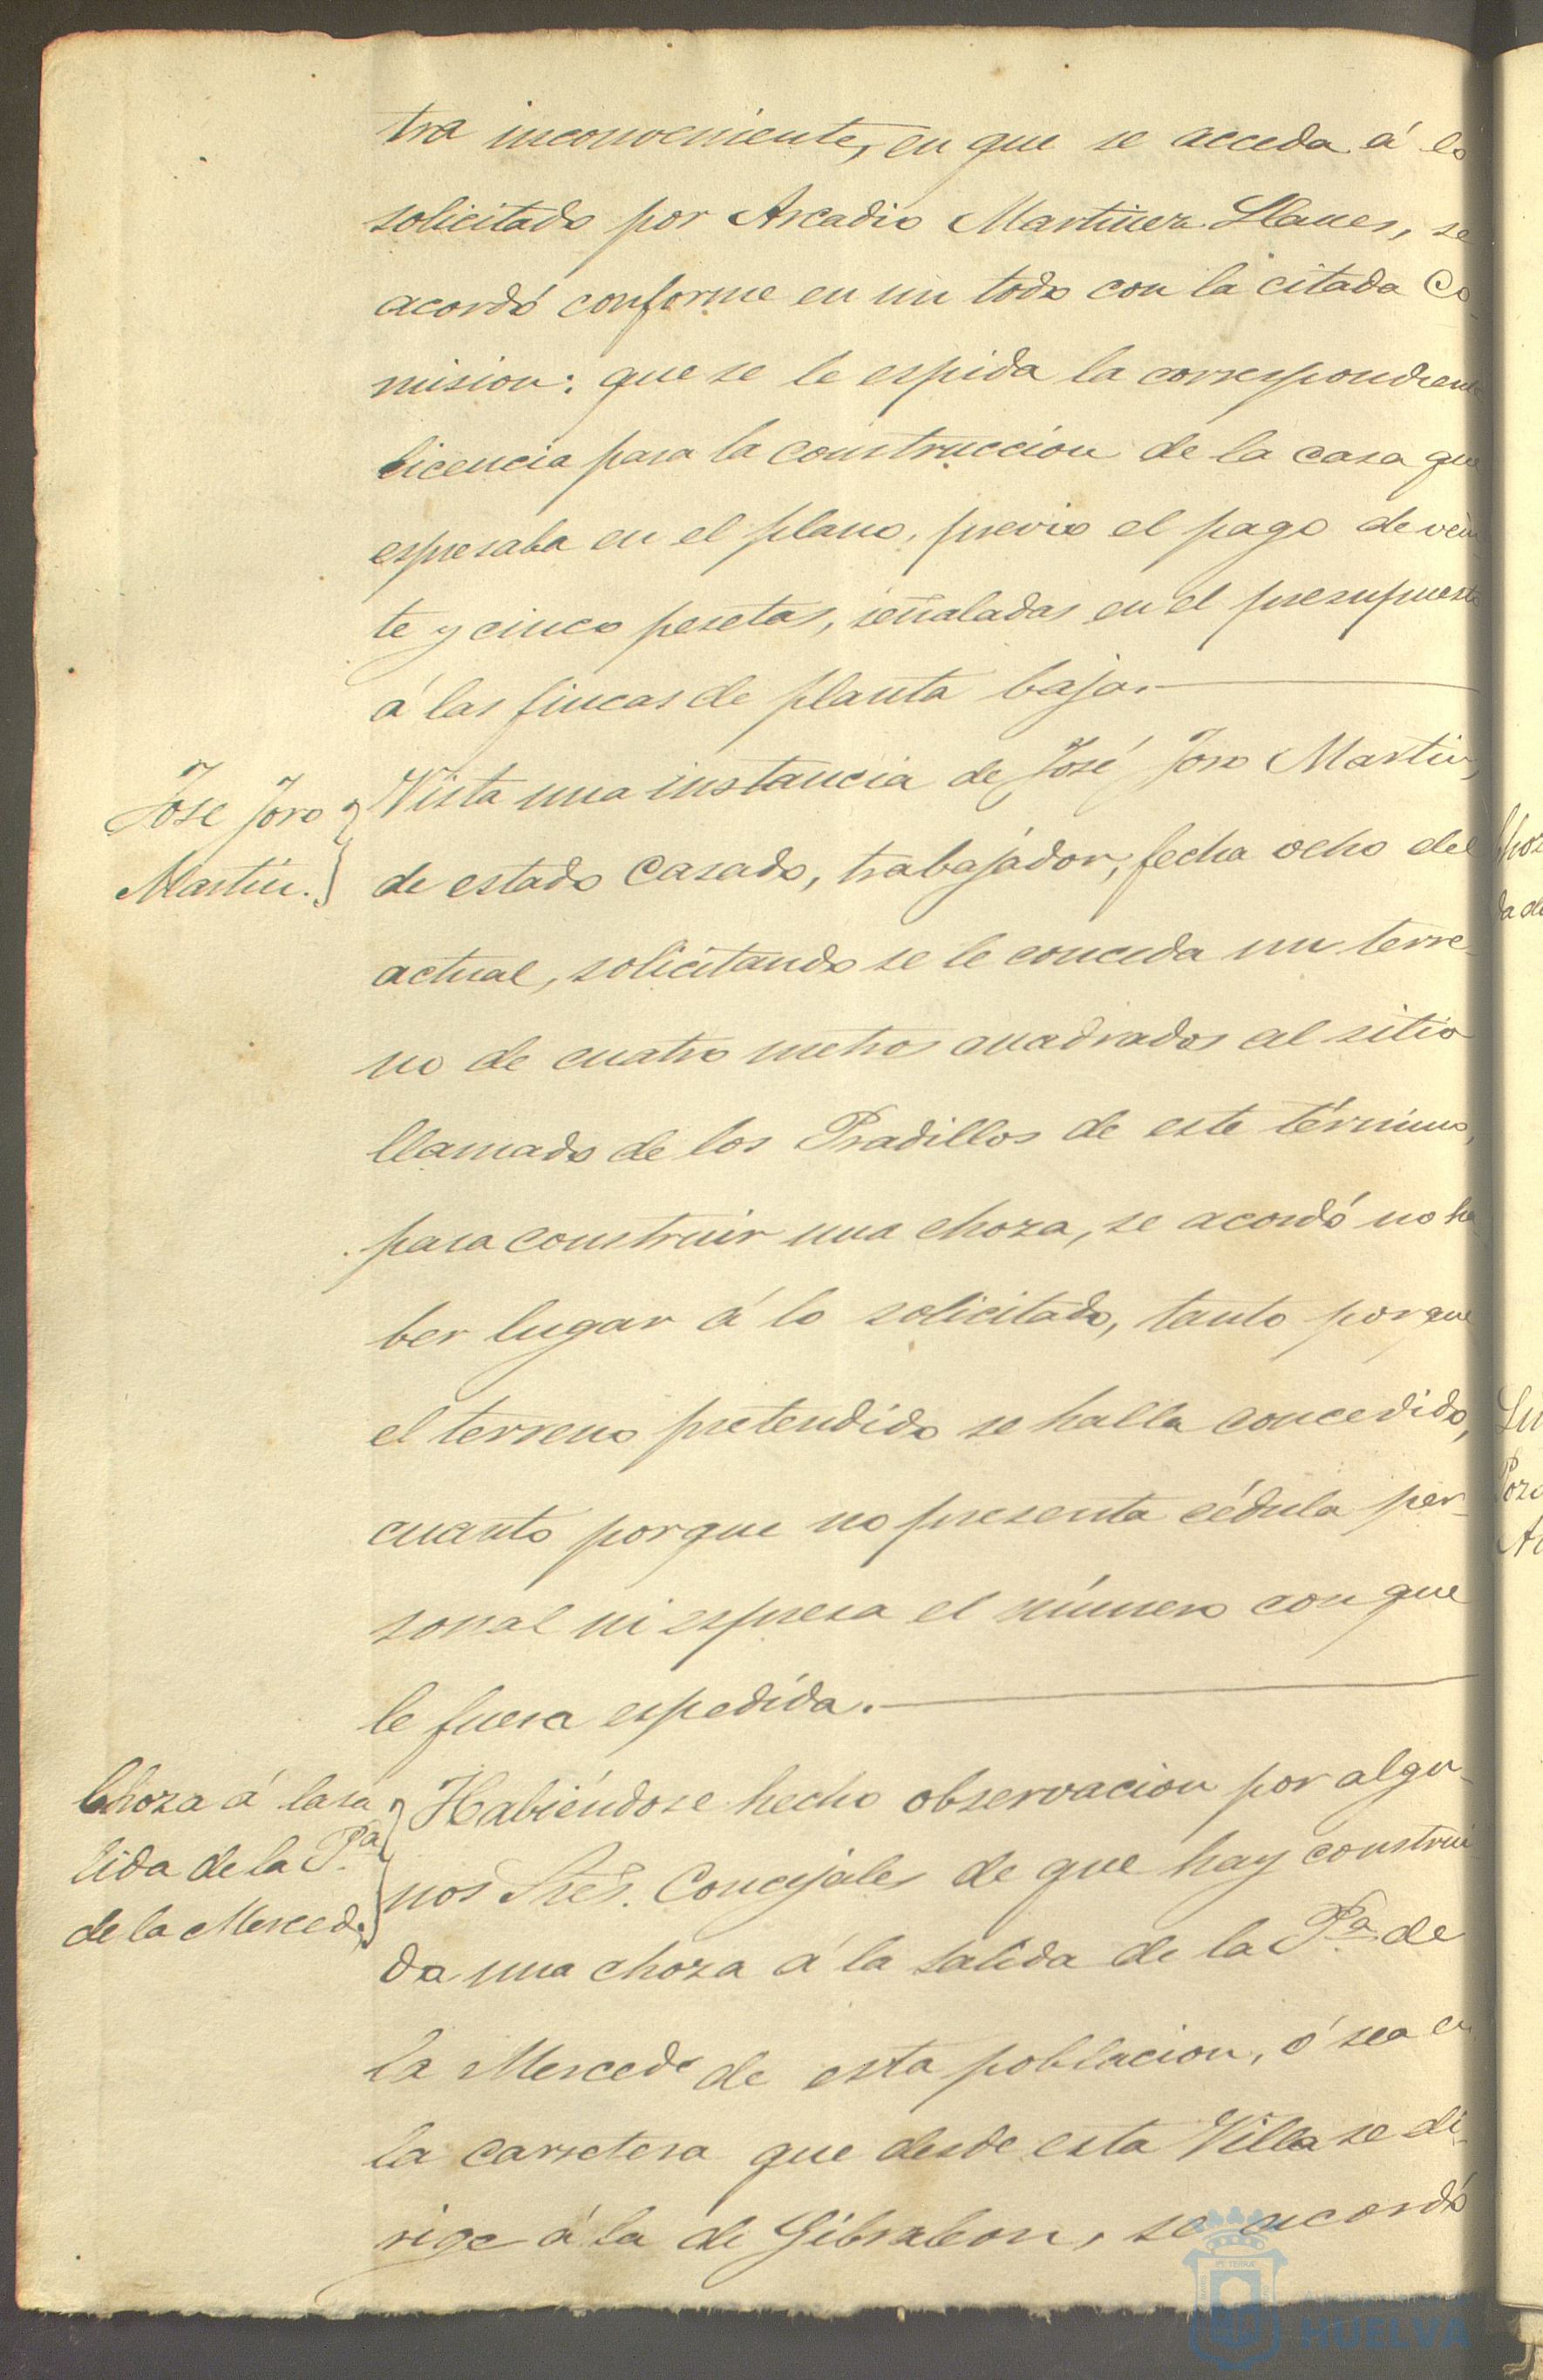 tra inconveniente, en que se acceda á lo
solicitado por Arcadio Martinez Llanes, se
acordó conforme en un todo con la citada Co-
mision: que se le espida la correspondiente
licencia para la construccion de la casa que
espresaba en el plano, previo el pago de vein-
te y cinco pesetas, señaladas en el presupuesto
á las fincas de planta baja.
José Toro
Martin.
Vista una instancia de José Toro Martin,
de estado casado, trabajador, fecha ocho del
actual, solicitando se le conceda un terre-
no de cuatro metros cuadrados al sitio
llamado de los Pradillos de este término,
para construir una choza, se acordó no ha-
ber lugar á lo solicitado, tanto porque
el terreno pretendido se halla concedido,
cuanto porque no presenta cédula per-
sonal ni espresa el número con que
le fuera espedida.
Choza á la sa
lida de la Pª
de la Merced.
Habiéndose hecho observacion por algu-
nos Sres. Concejales de que hay construi-
da una choza á la salida de la Pª de
la Merced de esta poblacion, ó sea en
la carretera que desde esta Villa se di-
rige á la de Gibraleon, se acordó
HUELVA